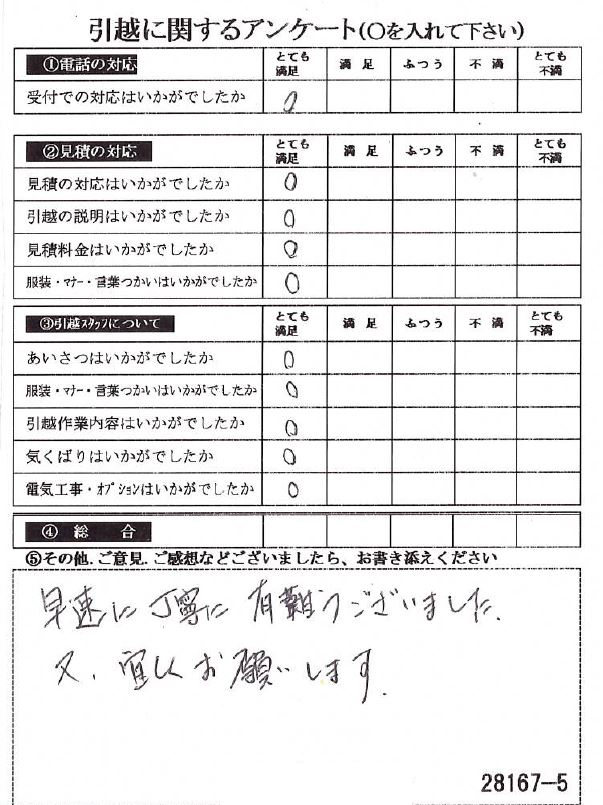 引越に関するアンケート(○を入れて下さい)
①電話の対応 とても満足 満足 ふつう 不満 とても不満
受付での対応はいかがでしたか ○
②見積の対応 とても満足 満足 ふつう 不満 とても不満
見積の対応はいかがでしたか ○
引越の説明はいかがでしたか ○
見積料金はいかがでしたか ○
服装・マナー・言葉つかいはいかがでしたか ○
③引越スタッフについて とても満足 満足 ふつう 不満 とても不満
あいさつはいかがでしたか ○
服装・マナー・言葉つかいはいかがでしたか ○
引越作業内容はいかがでしたか ○
気くばりはいかがでしたか ○
電気工事・オプションはいかがでしたか ○
④ 総 合
⑤その他.ご意見.ご感想などございましたら、お書き添えください
早速に丁寧に有難うございました.
又、宜しくお願いします.
28167-5